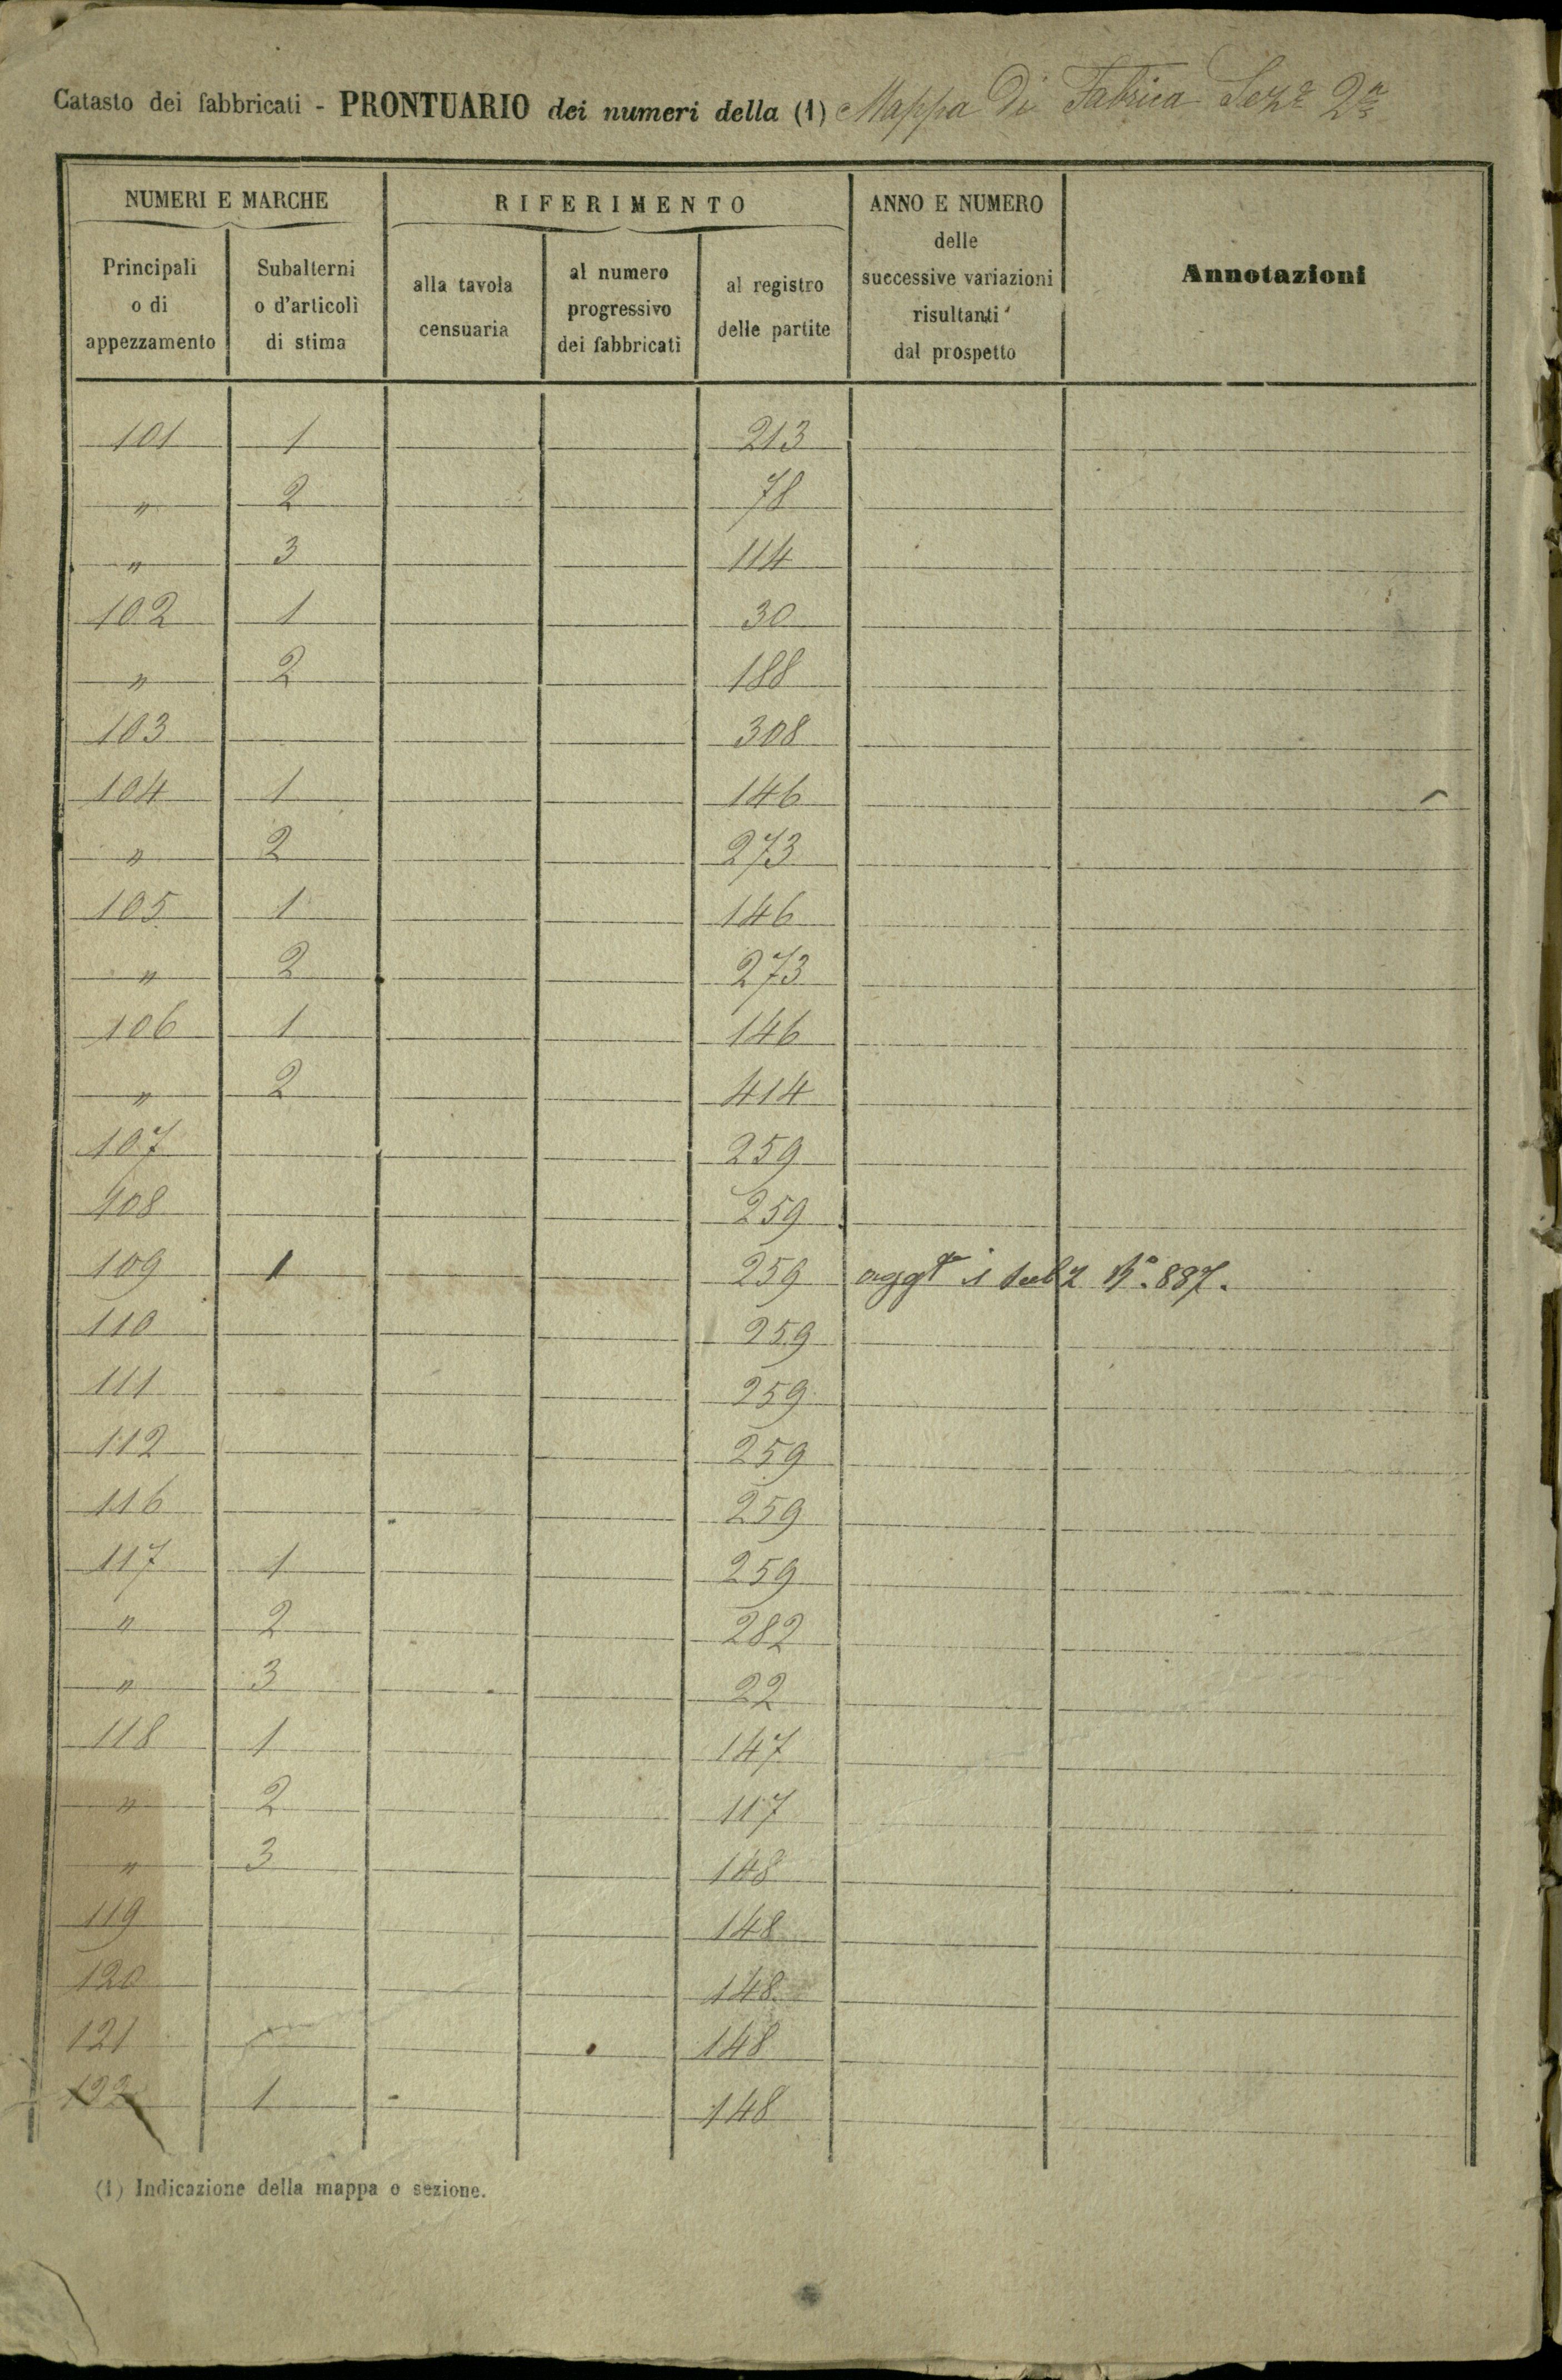 Catasto dei fabbricati - PRONTUARIO dei numeri della (1) Mappa Di Fabrica Sez.e 2a
NUMERI E MARCHE
RIFERIMENTO
ANNO E NUMERO
delle
successive variazioni
risultanti
dal prospetto
Annotazioni
Principali
o di
appezzamento
Subalterni
o d'articoli
di stima
alla tavola
censuaria
al numero
progressivo
dei fabbricati
al registro
delle partite
101 1 213
" 2 78
" 3 114
102 1 30
" 2 188
103 308
104 1 146
" 2 273
105 1 146
" 2 273
106 1 146
" 2 414
107 259
108 259
109 1 259 sub 2 887.
110 259
111 259
112 259
116 259
117 1 259
" 2 282
" 3 22
118 1 147
" 2 117
" 3 148
119 148
120 148
121 148
122 1 148
(1) Indicazione della mappa o sezione.